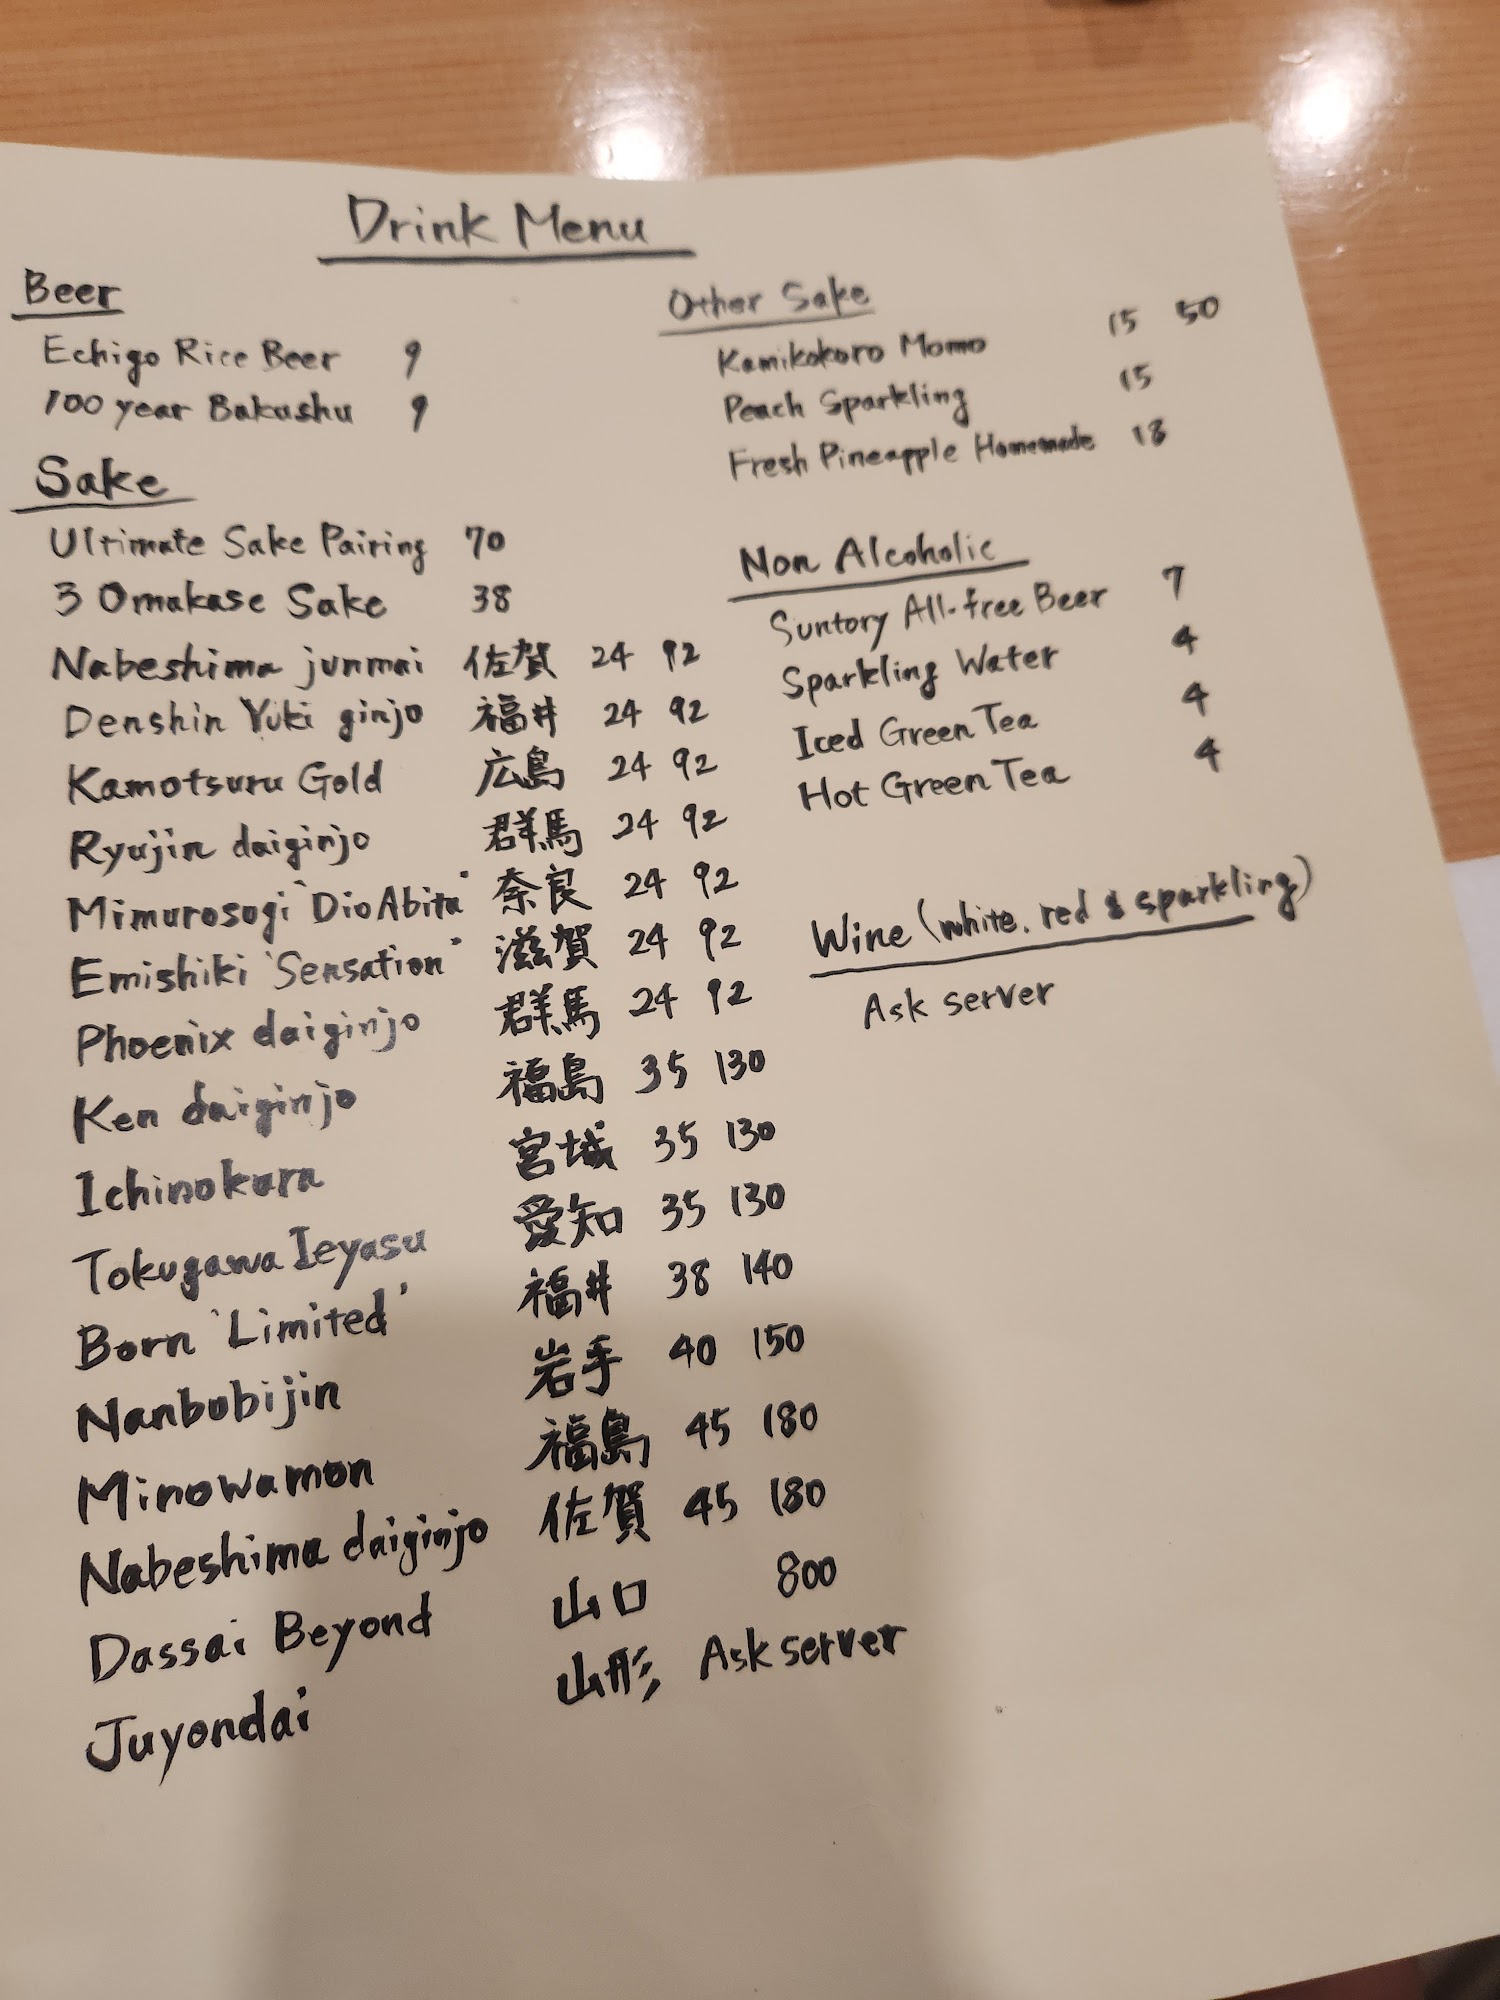 Drink Menu
Beer
Echigo Rice Beer 9
100 year Bakushu 9
Sake
Ultimate Sake Pairing 70
3 Omakase Sake 38
Nabeshima junmai 佐賀 24 92
Denshin Yuki ginjo 福井 24 92
Kamotsuru Gold 広島 24 92
Ryujin daiginjo 群馬 24 92
Mimurosugi "Dio Abita" 奈良 24 92
Emishiki "Sensation" 滋賀 24 92
Phoenix daiginjo 群馬 24 92
Ken daiginjo 福島 35 130
Ichinokura 宮城 35 130
Tokugawa Ieyasu 愛知 35 130
Born 'Limited' 福井 38 140
Nanbubijin 岩手 40 150
Minowamon 福島 45 180
Nabeshima daiginjo 佐賀 45 180
Dassai Beyond 山口 800
Juyondai 山形 Ask server
Other Sake
Kamikokoro Momo 15 50
Peach Sparkling 15
Fresh Pineapple Homemade 18
Non Alcoholic
Suntory All-free Beer 7
Sparkling Water 4
Iced Green Tea 4
Hot Green Tea 4
Wine (white, red & sparkling)
Ask server